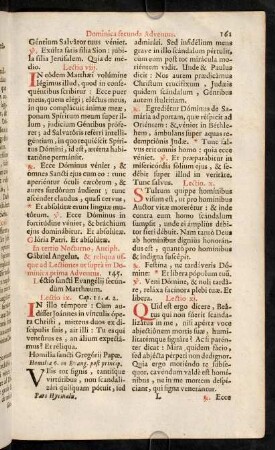 Dominica secunda Adventus. 161
Gentium Salvator tuus veniet.
℣. Exulta satis filia Sion: jubi-
la filia Jerusalem. Quia de me-
dio.
Lectio viij.
IN eodem Matthæi volumine
legimus illud, quod in conse-
quentibus scribitur: Ecce puer
meus, quem elegi; electus meus,
in quo complacuit animæ meæ:
ponam Spiritum meum super il-
lum, judicium Gentibus profe-
ret; ad Salvatoris referri intelli-
gentiam, in quo requievit Spiri-
tus Domini, id est, æterna habi-
tatione permansit.
℟. Ecce Dominus veniet, &
omnes Sancti ejus cum eo: tunc
aperientur oculi cæcorum, &
aures surdorum audient; tunc
ascendet claudus quasi cervus,
Et absoluta erit lingua mutorum.
℣. Ecce Dominus in fortitudine veniet,
Gloria Patri. Et absoluta.
In tertio Nocturno, Antiph.
Gabriel Angelus, & reliqua us-
que ad Lectiones ut supra in Do-
minica prima Adventus. 145.
Lectio sancti Evangelij secun-
dum Matthæum.
Lectio ix. Cap. 11. a. 2.
IN illo tempore: Cum au-
disset Joannes in vinculis ope-
ra Christi, mittens duos ex di-
scipulis suis, ait illi: Tu es qui
venturus es, an alium expecta-
mus? Et reliqua.
Homilia sancti Gregorij Papæ.
Homilia 6. in Evang. post princip.
VIsis tot signis, tantisque
virtutibus, non scandali-
zari quisque potuit, sed
Pars Hyemalis. L
admirari. Sed infidelium mens
grave in illo scandalum pertulit,
cum eum post tot miracula mo-
rientem vidit. Unde & Paulus
dicit: Nos autem prædicamus
Christum crucifixum, Judæis
quidem scandalum, Gentibus
autem stultitiam.
℟. Egredietur Dominus de Sa-
maria ad portam, quæ respicit ad
Orientem: & veniet in Bethle-
hem, ambulans super aquas re-
demptionis Judæ. * Tunc sal-
vus erit omnis homo: quia ecce
veniet. ℣. Et præparabitur in
misericordia solium ejus, & se-
debit super illud in veritate.
Tunc salvus. Lectio x.
STultum quippe hominibus
visum est, ut pro hominibus
Auctor vitæ moreretur: & inde
contra eum homo scandalum
sumpsit, unde ei amplius debitor
fieri debuit. Nam tanto Deus
ab hominibus dignius honoran-
dus est, quanto pro hominibus &
indigna suscepit.
℟. Festina, ne tardaveris Do-
mine: * Et libera populum tuum.
℣. Veni Domine, & noli tardare.
Et libera.
Lectio xi.
QUid est ergo dicere, Bea-
tus qui non fuerit scanda-
lizatus in me, nisi aperta voce
abjectionem mortis suæ, humi-
litatemque signare? Ac si pa-
tenter dicat: Mira, quidem facio,
sed abjecta perpeti non dedignor.
Quia ergo moriendo te subse-
quor, cavendum est valde homi-
nibus, ne in me mortem despi-
ciant, qui signa venerantur.
℟. Ecce